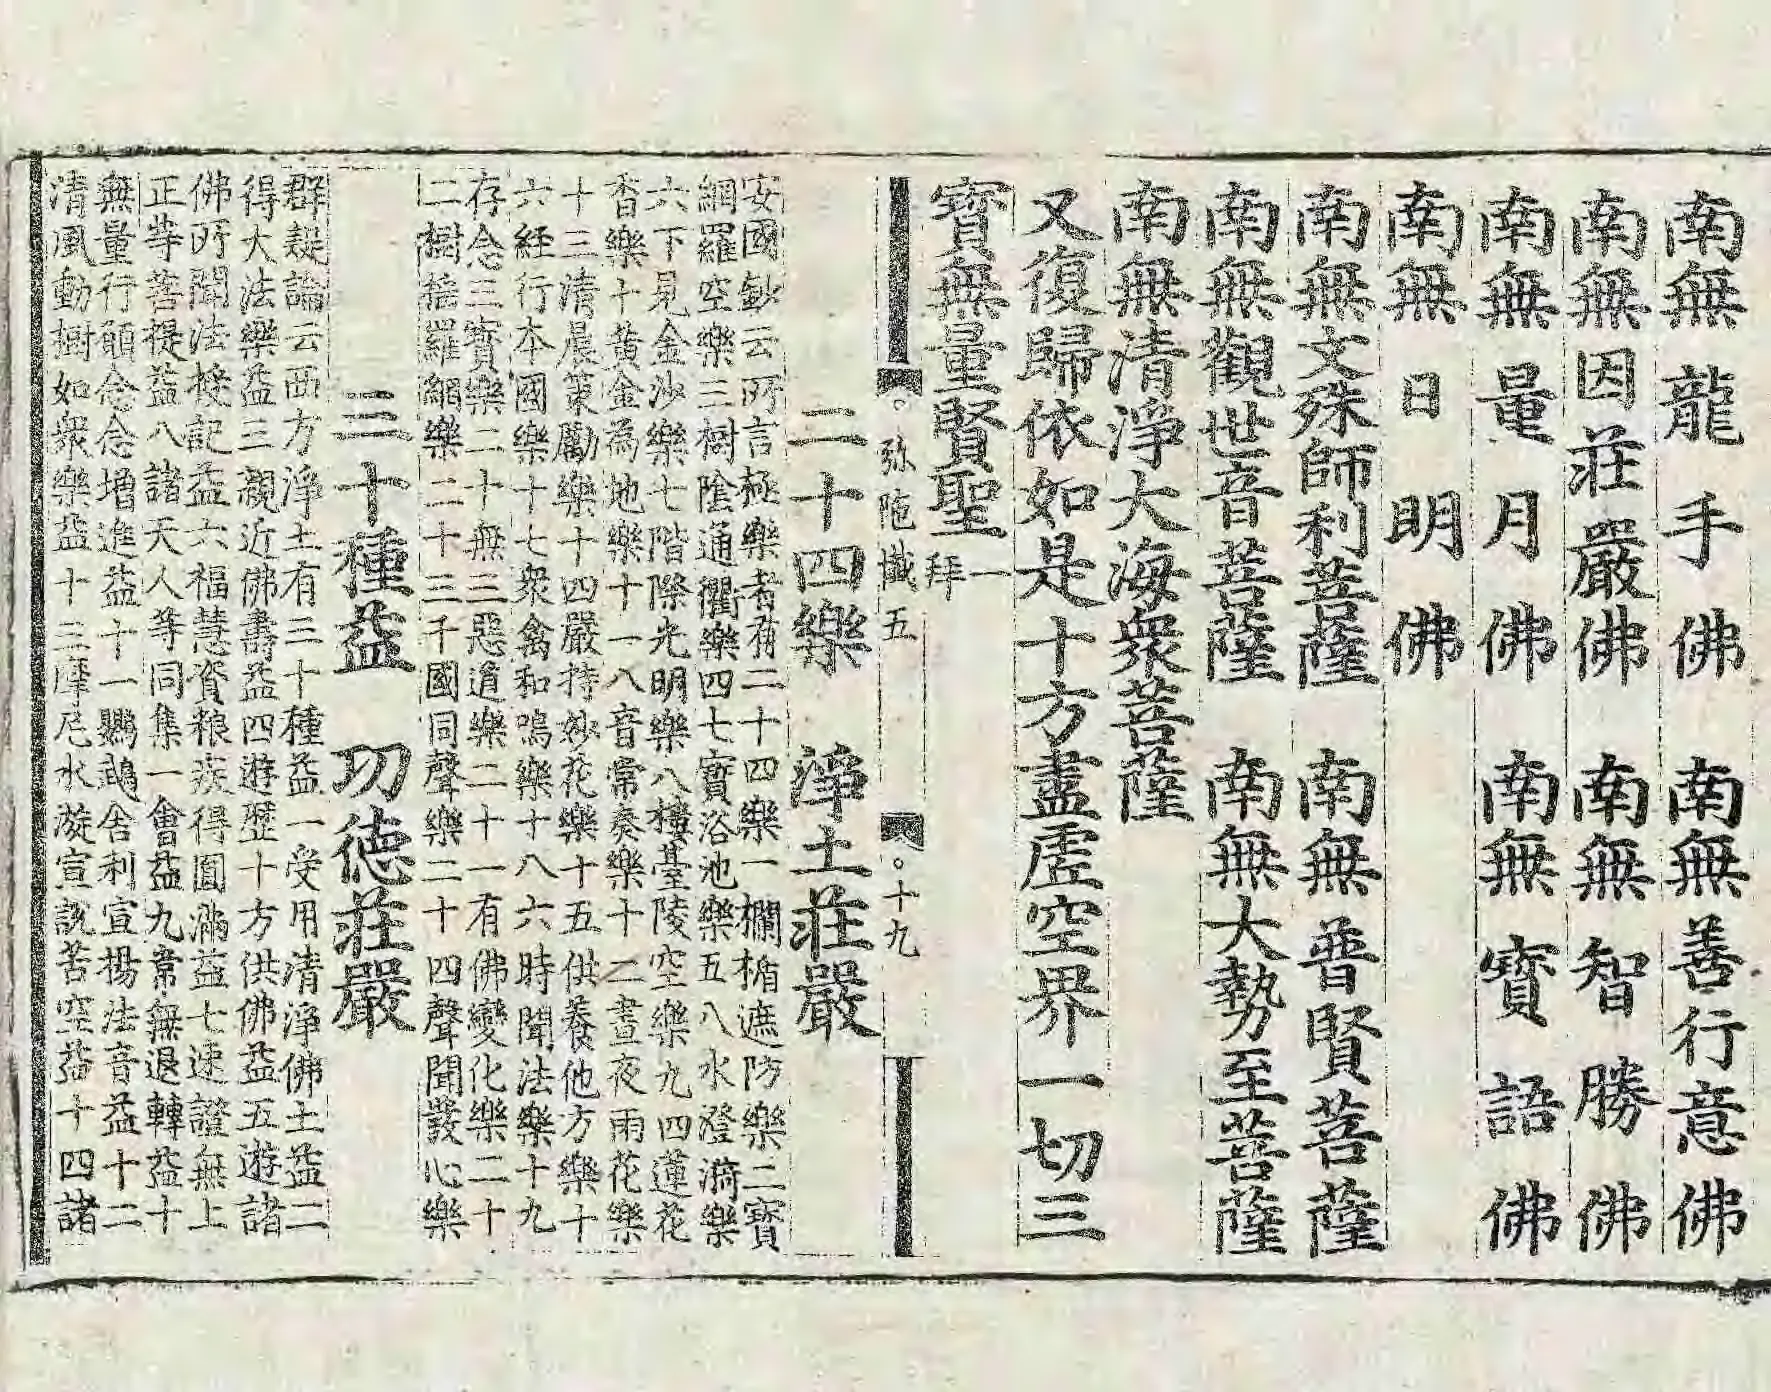 南無龍手佛　南無善行意佛
南無因莊嚴佛　南無智勝佛
南無量月佛　南無寶語佛
南無日明佛
南無文殊師利菩薩　南無普賢菩薩
南無觀世音菩薩　南無大勢至菩薩
南無清淨大海衆菩薩
又復歸依如是十方盡虛空界一切三
寶無量賢聖一拜
弥陁懺五　十九
二十四樂　淨土莊嚴
安國鈔云所言極樂者有二十四樂一欄楯遮防樂二寶
網羅空樂三樹陰通衢樂四七寶浴池樂五八水澄漪樂
六下見金沙樂七階際光明樂八樓臺陵空樂九四蓮花
香樂十黃金為地樂十一八音常奏樂十二晝夜雨花樂
十三清晨策勵樂十四嚴持妙花樂十五供養他方樂十
六經行本國樂十七衆禽和鳴樂十八六時聞法樂十九
存念三寶樂二十無三惡道樂二十一有佛變化樂二十
二樹搖羅網樂二十三千國同聲樂二十四聲聞發心樂
三十種益　功德莊嚴
群疑論云西方淨土有三十種益一受用清淨佛土益二
得大法樂益三親近佛壽益四遊歷十方供佛益五遊諸
佛所聞法授記益六福慧資粮疾得圓滿益七速證無上
正等菩提益八諸天人等同集一會益九常無退轉益十
無量行願念念增進益十一鸚鵡舍利宣揚法音益十二
清風動樹如衆樂益十三摩尼水漩宣說苦空益十四諸